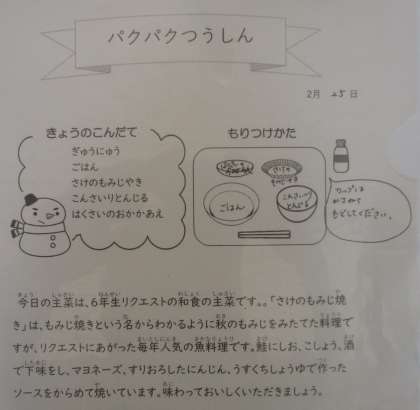 パクパクつうしん
2月 25日
きょうのこんだて
ぎゅうにゅう
ごはん
さけのもみじやき
こんさいりとんじる
はくさいのおかかあえ
もりつけかた
はくさいの
おかかあえ
さけの
もみじやき
ごはん
こんさいいり
とんじる
カップは
かさねて
もどしてください。
今日の主菜は、6年生リクエストの和食の主菜です。。「さけのもみじ焼
き」は、もみじ焼きという名からわかるように秋のもみじをみたてた料理で
すが、リクエストにあがった毎年人気の魚料理です。鮭にしお、こしょう、酒
で下味をし、マヨネーズ、すりおろしたにんじん、うすくちしょうゆで作った
ソースをからめて焼いています。味わっておいしくいただきましょう。